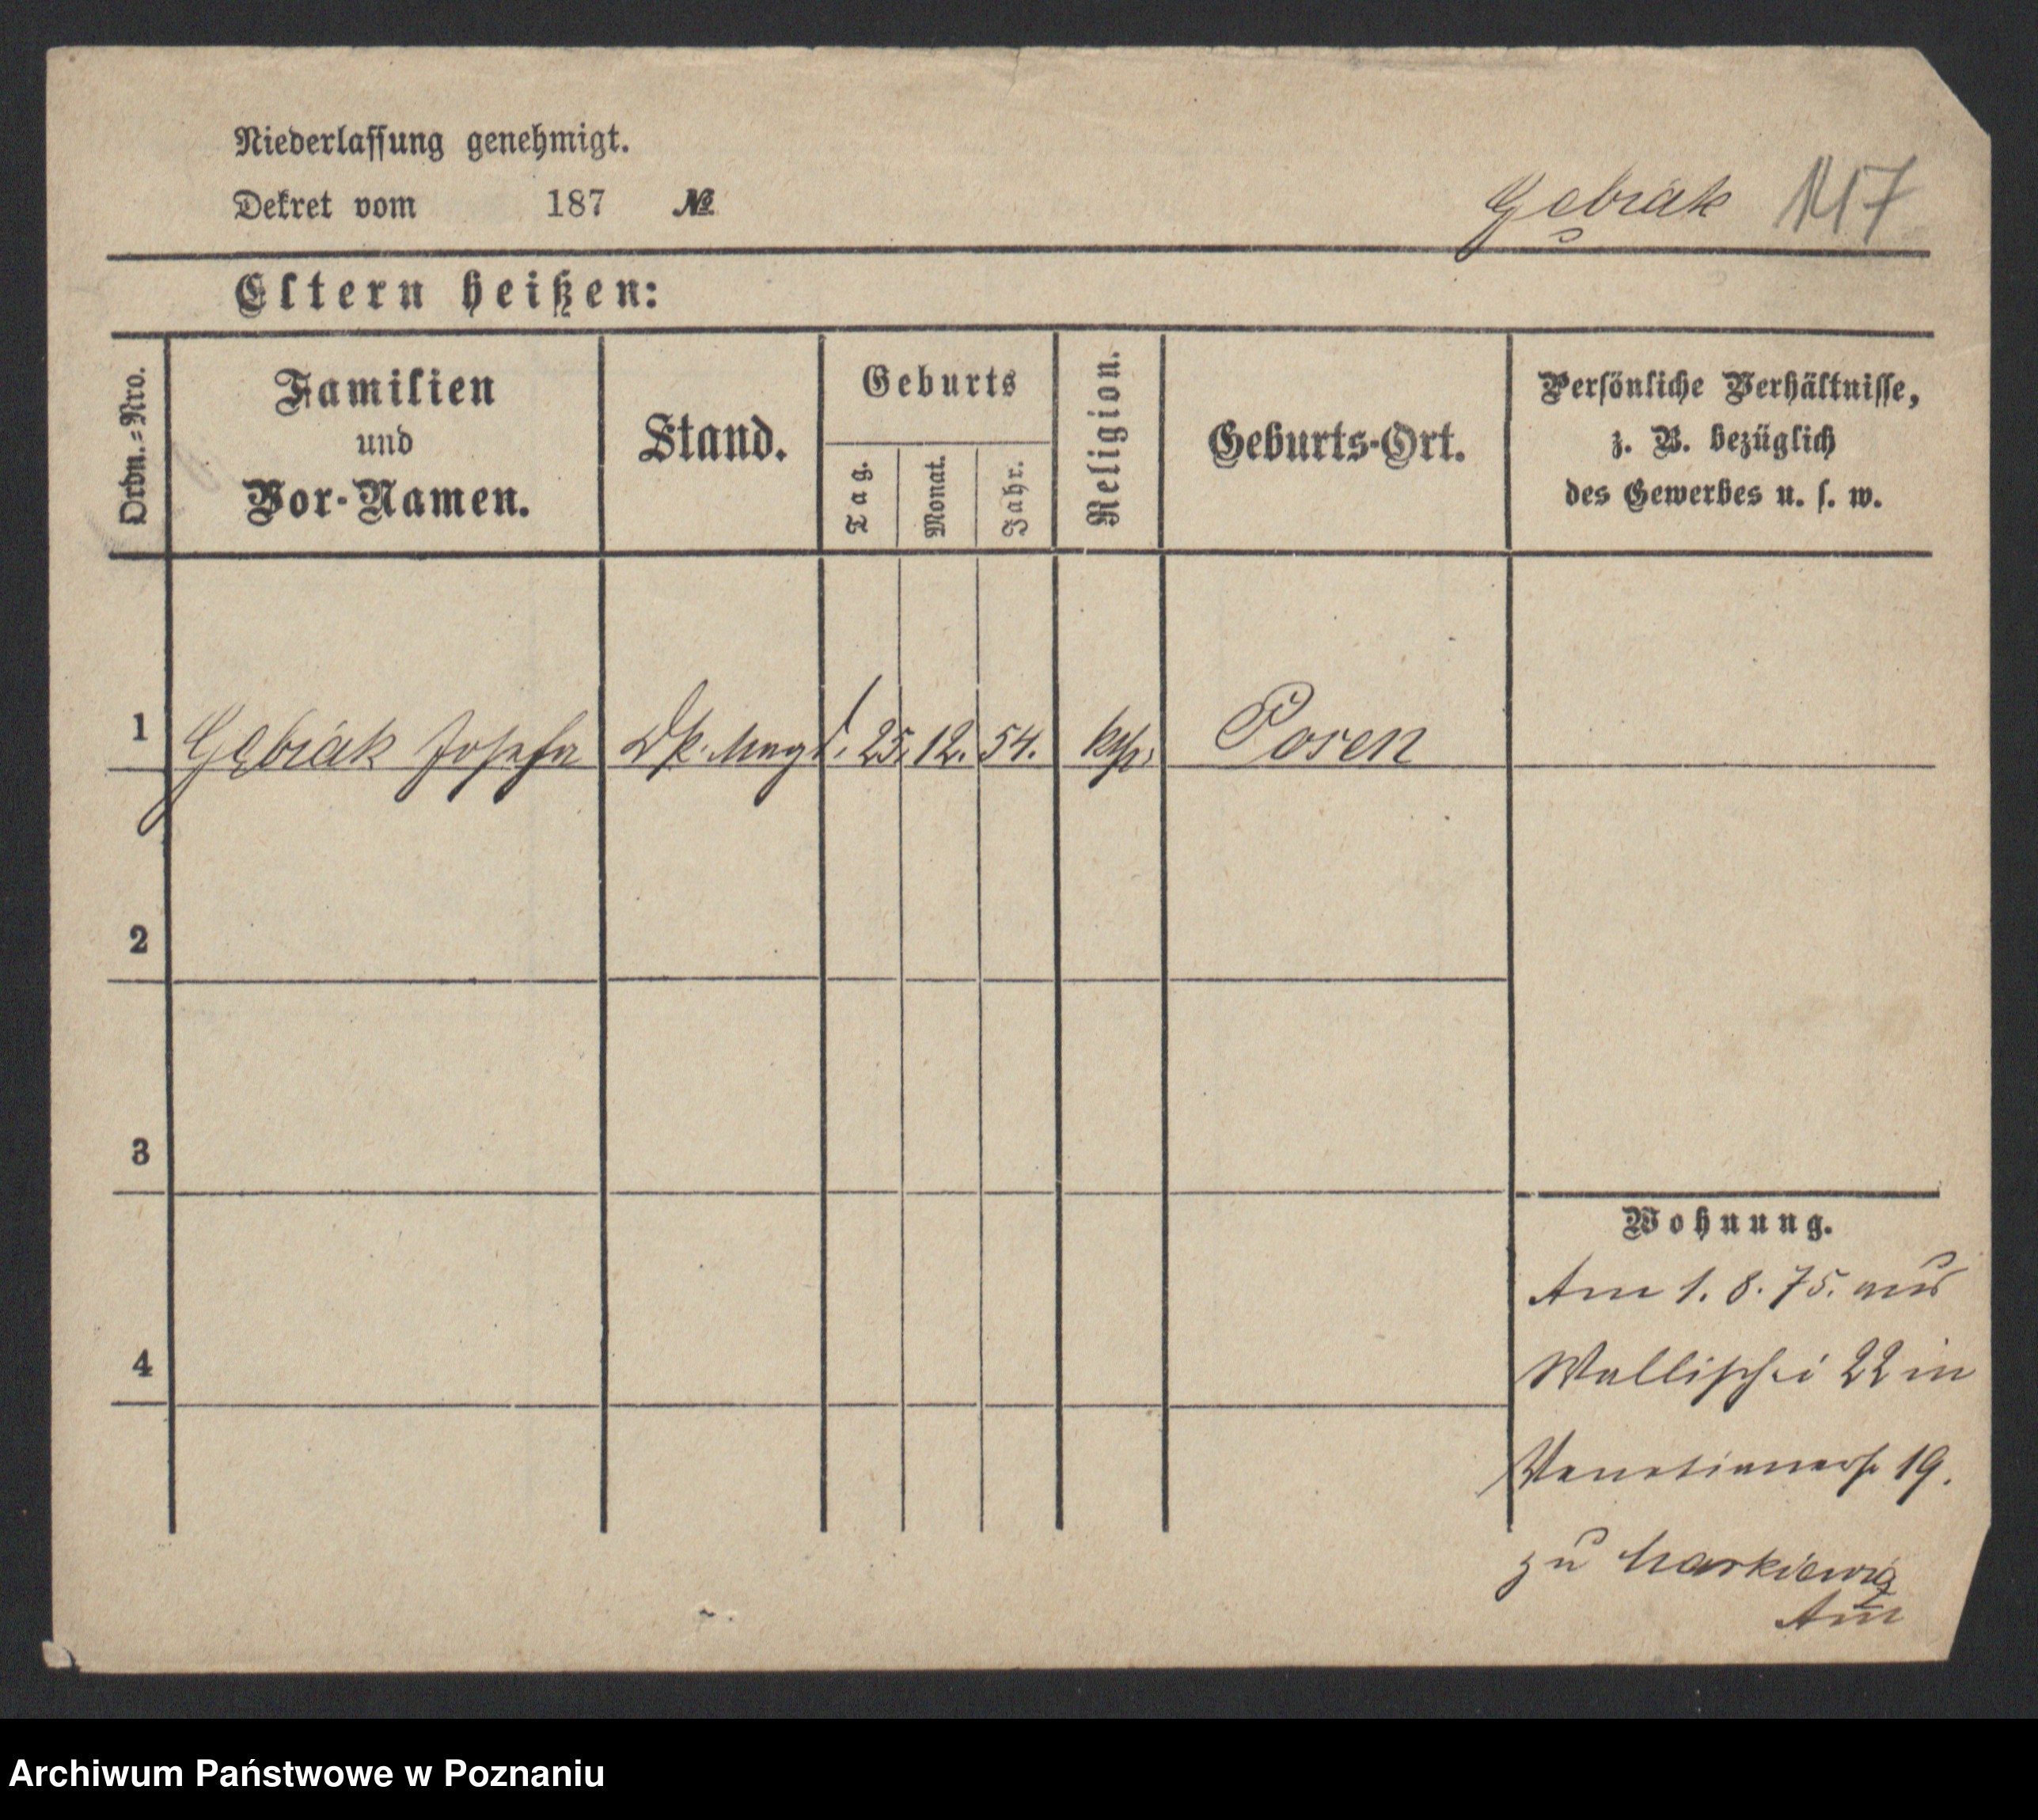 Niederlassung genehmigt.
Dekret vom 187 №
Gębiak 117
Eltern heißen:
Ordn.=Nro.
Familien
und
Vor-Namen.
Stand.
Geburts
Tag.
Monat.
Jahr.
Religion.
Geburts-Ort.
Persönliche Verhältnisse,
z. B. bezüglich
des Gewerbes u. s. w.
1 Gębiak Josefa Magd. 25. 12. 54. Posen
2
3
4
Wohnung.
Am 1. 8. 75. aus
Wallischei 22 in
Venetianerstr 19.
zu Markiewicz
Archiwum Państwowe w Poznaniu